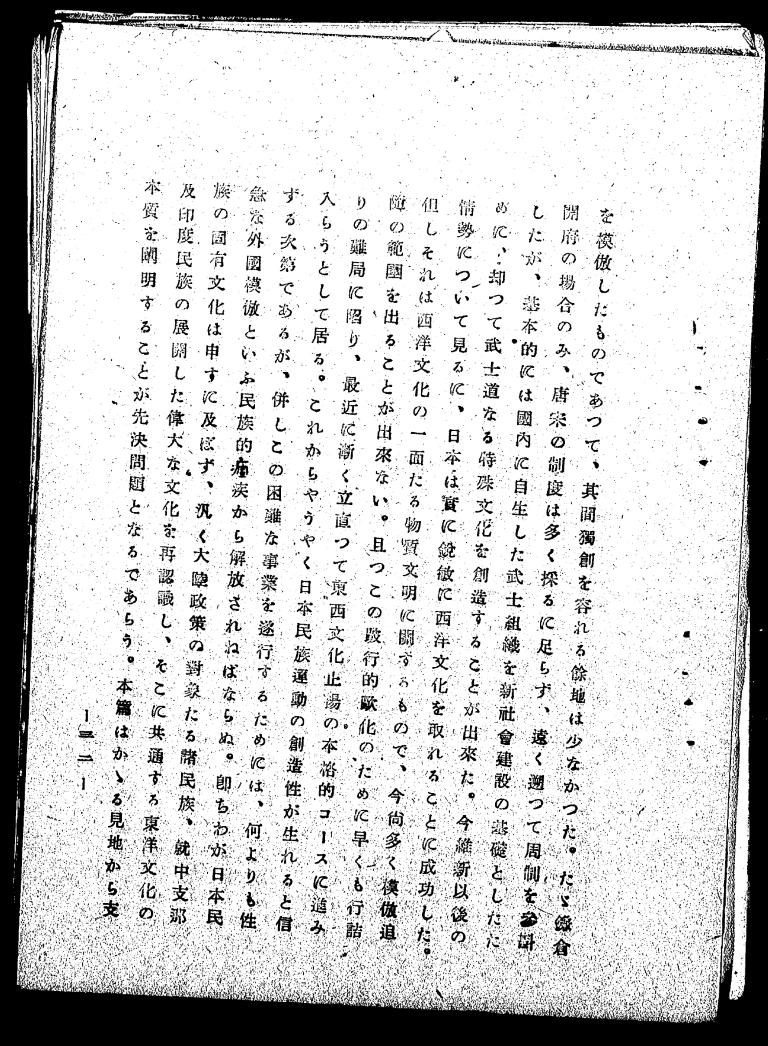 を模倣したものであつて、其間獨創を容れる餘地は少なかつた。たゞ鎌倉
開府の場合のみ、唐宋の制度は多く採るに足らず、遠く遡つて周制を參酌
したが、基本的には國内に自生した武士組織を新社會建設の基礎としたた
めに、却つて武士道なる特殊文化を創造することが出來た。今維新以後の
情勢について見るに、日本は實に鋭敏に西洋文化を取れることに成功した。
但しそれは西洋文化の一面たる物質文明に關するもので、今尚多く模倣追
隨の範圍を出ることが出來ない。且つこの跛行的歐化のために早くも行詰
りの難局に陷り、最近に漸く立直つて東西文化止揚の本格的コースに進み
入らうとして居る。これからやうやく日本民族運動の創造性が生れると信
ずる次第であるが、併しこの困難な事業を遂行するためには、何よりも性
急な外國模倣といふ民族的痼疾から解放されねばならぬ。卽ちわが日本民
族の固有文化は申すに及ばず、汎く大陸政策の對象たる諸民族、就中支那
及印度民族の展開した偉大な文化を再認識し、そこに共通する東洋文化の
本質を闡明することが先決問題となるであらう。本篇はかゝる見地から支